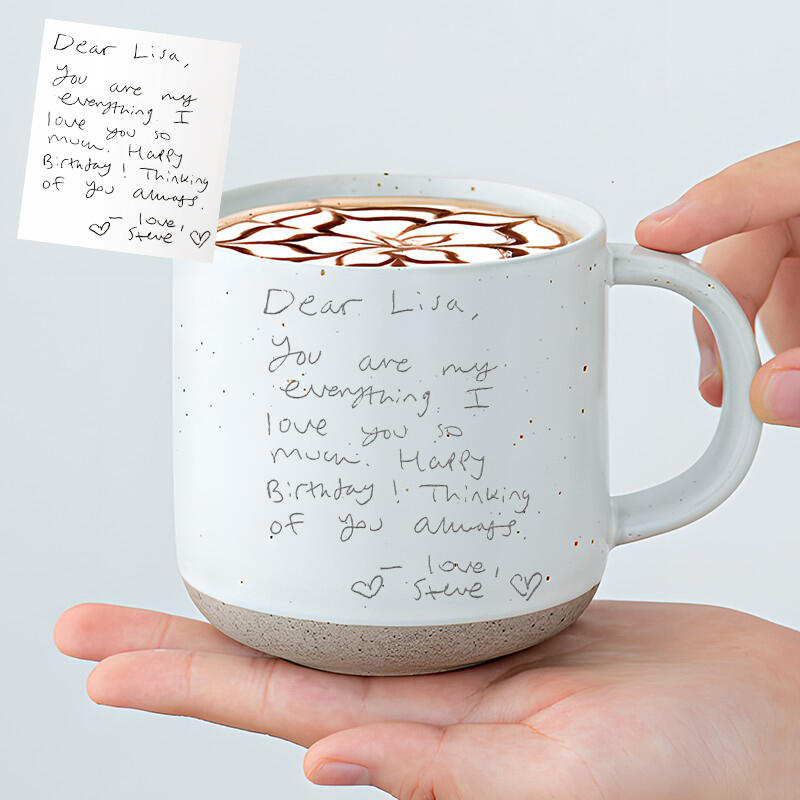 Dear Lisa,
You are my
everything. I
love you so
much. Happy
Birthday! Thinking
of you always.
– love,
Steve
Dear Lisa,
You are my
everything. I
love you so
much. Happy
Birthday! Thinking
of you always.
– love,
Steve